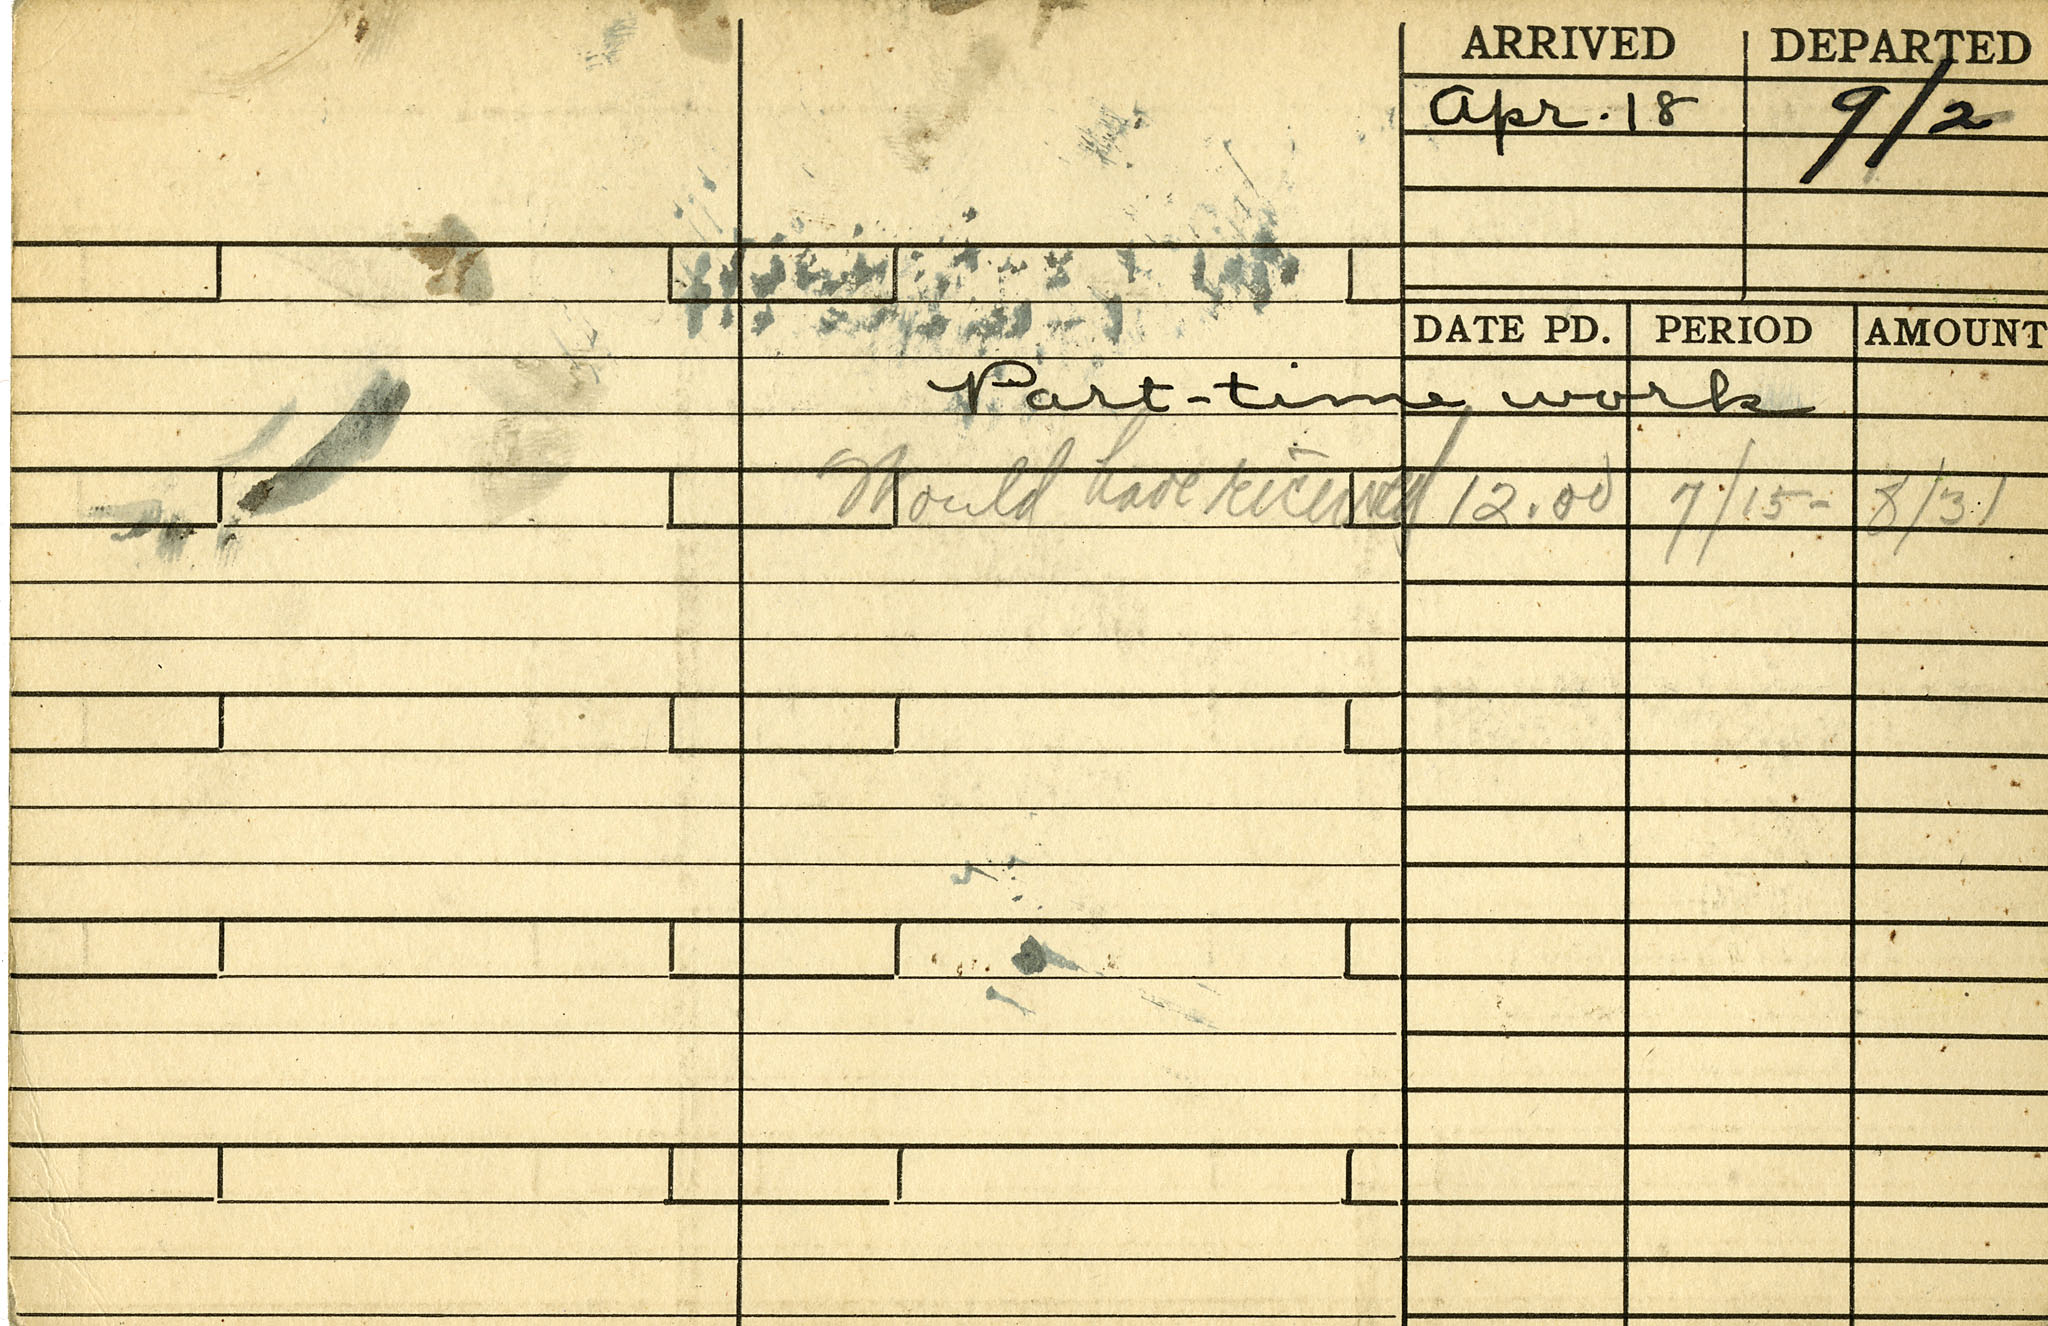 ARRIVED DEPARTED
Apr. 18 9/2
DATE PD. PERIOD AMOUNT
Part-time work
Would have received 12.00 7/15- 8/31